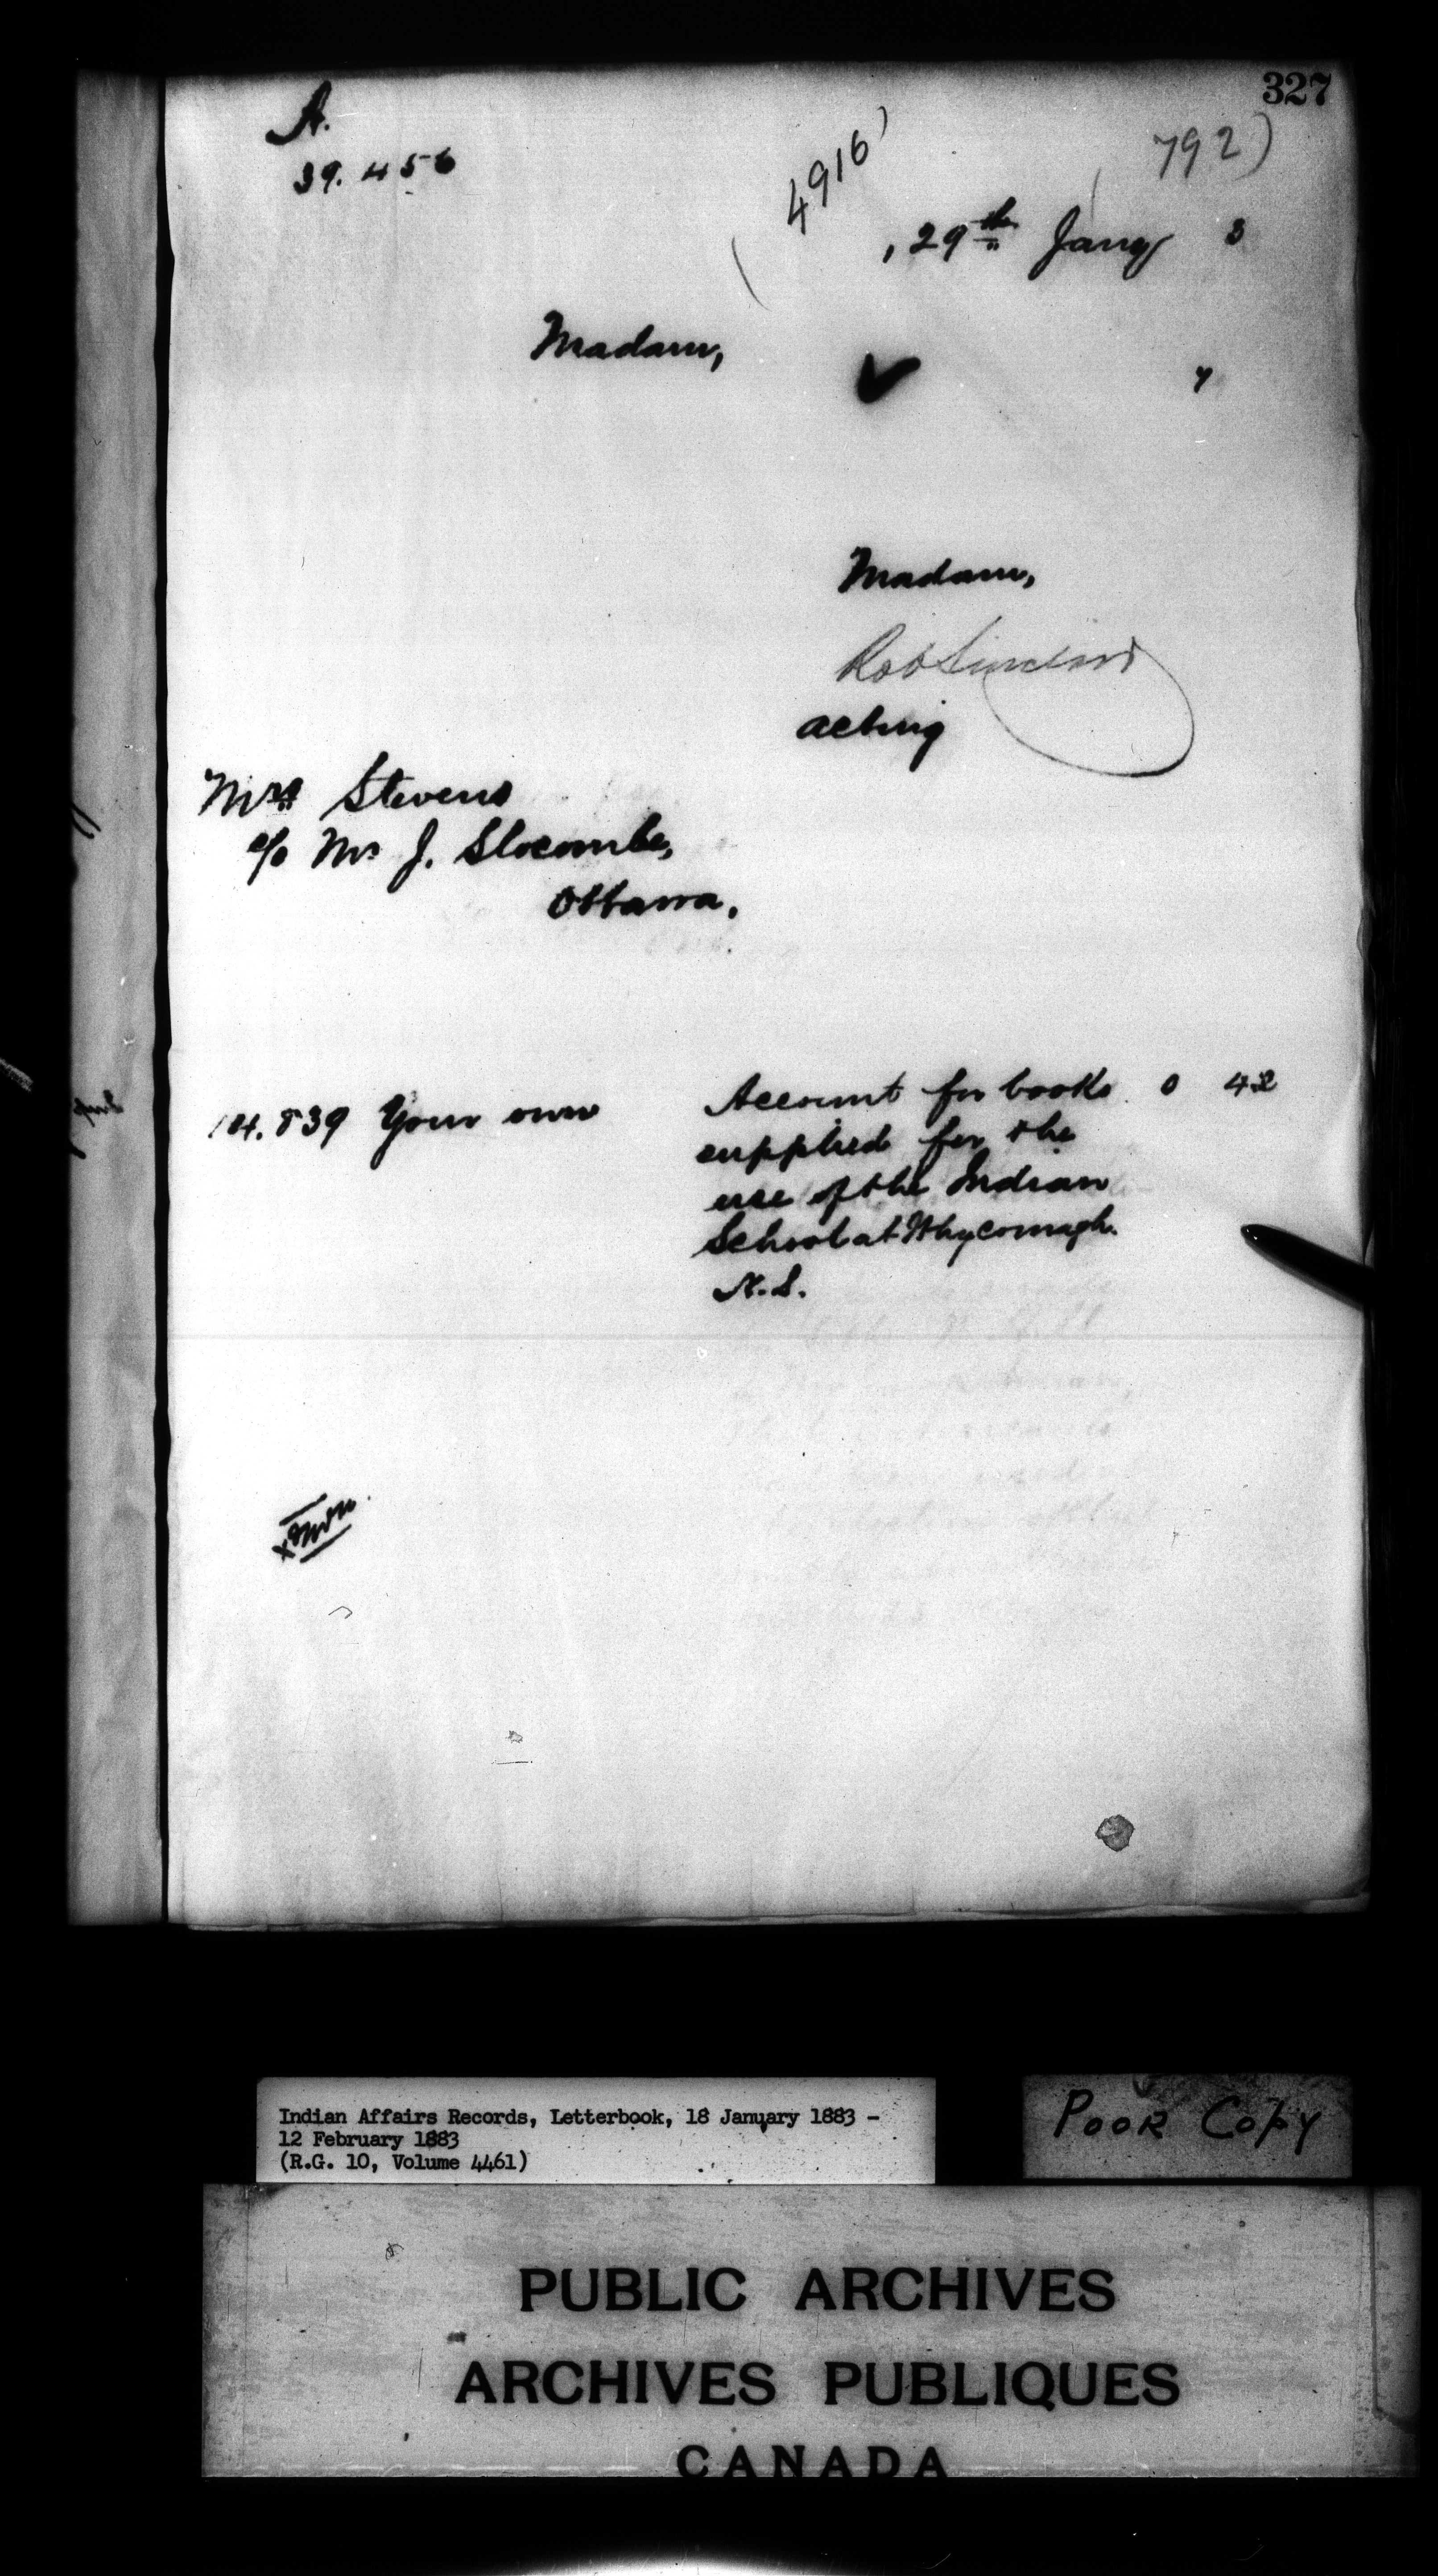 327
A.
39.456
(4916)
792)
, 29th Jany 3
Madam,
y
Madam,
Rob Sinclair
acting
Mrs Stevens
c/o Mr J. Slocombe,
Ottawa,
14.839 Your own
Account for books 0 42
supplied for the
use of the Indian
School at Whycomagh.
N.S.
Indian Affairs Records, Letterbook, 18 January 1883 -
12 February 1883
(R.G. 10, Volume 4461)
POOR COPY
PUBLIC ARCHIVES
ARCHIVES PUBLIQUES
CANADA